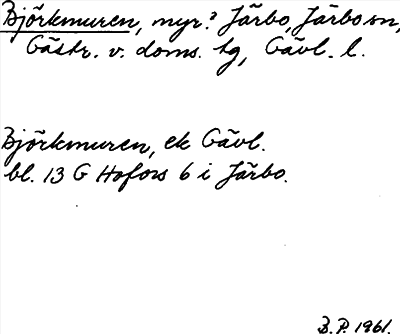 Björkmuren, myr? Järbo, Järbo sn,
Gästr. v. doms. tg, Gävl. l.
Björkmuren, ek Gävl.
bl. 13 G Hofors 6 i Järbo.
B. P. 1961.